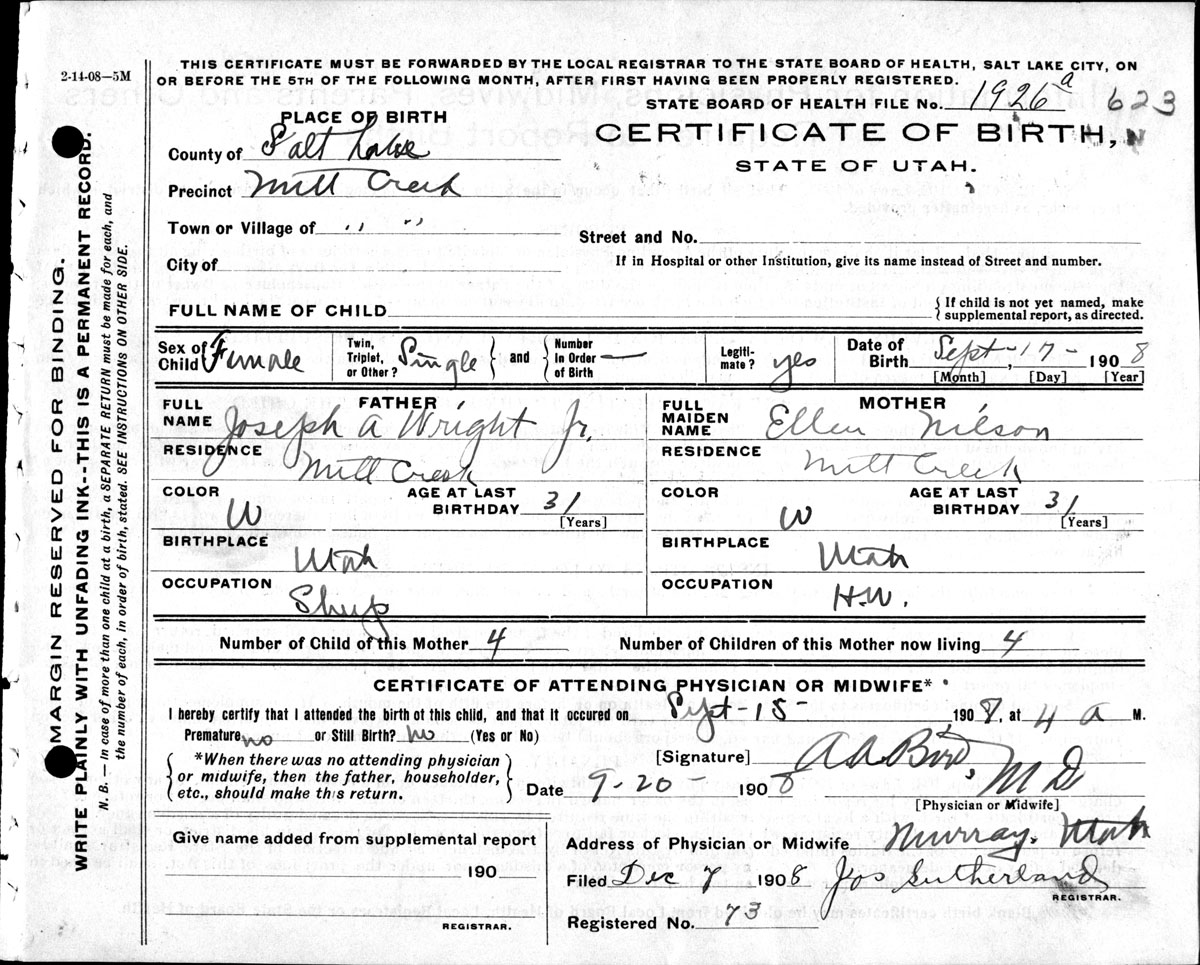 2-14-08—5M
THIS CERTIFICATE MUST BE FORWARDED BY THE LOCAL REGISTRAR TO THE STATE BOARD OF HEALTH, SALT LAKE CITY, ON
OR BEFORE THE 5TH OF THE FOLLOWING MONTH, AFTER FIRST HAVING BEEN PROPERLY REGISTERED.
STATE BOARD OF HEALTH FILE No. 1926a 623
PLACE OF BIRTH
CERTIFICATE OF BIRTH,
STATE OF UTAH.
County of Salt Lake
Precinct Mill Creek
Town or Village of " "
Street and No.
City of
If in Hospital or other Institution, give its name instead of Street and number.
FULL NAME OF CHILD
{ If child is not yet named, make
supplemental report, as directed.
Sex of Child Female
Twin, Triplet, or Other? Single } and { Number In Order of Birth —
Legitimate? yes
Date of Birth Sept-17- 1908
[Month] [Day] [Year]
FATHER
FULL NAME Joseph A Wright Jr.
RESIDENCE Mill Creek
COLOR W
AGE AT LAST BIRTHDAY 31
[Years]
BIRTHPLACE Utah
OCCUPATION Sheep
MOTHER
FULL MAIDEN NAME Ellen Nilson
RESIDENCE Mill Creek
COLOR W
AGE AT LAST BIRTHDAY 31
[Years]
BIRTHPLACE Utah
OCCUPATION H.W.
Number of Child of this Mother 4
Number of Children of this Mother now living 4
CERTIFICATE OF ATTENDING PHYSICIAN OR MIDWIFE*
I hereby certify that I attended the birth of this child, and that it occured on Sept-15- 1908, at 4 a M.
Premature no or Still Birth? no (Yes or No)
{ *When there was no attending physician
or midwife, then the father, householder,
etc., should make this return. }
[Signature] A A Bird, M D
Date 9-20- 1908
[Physician or Midwife]
Given name added from supplemental report
190
REGISTRAR.
Address of Physician or Midwife Murray, Utah
Filed Dec 7 1908 Jos Sutherland
REGISTRAR.
Registered No. 73
MARGIN RESERVED FOR BINDING.
WRITE PLAINLY WITH UNFADING INK--THIS IS A PERMANENT RECORD.
N. B.—In case of more than one child at a birth, a SEPARATE RETURN must be made for each, and
the number of each, in order of birth, stated. SEE INSTRUCTIONS ON OTHER SIDE.